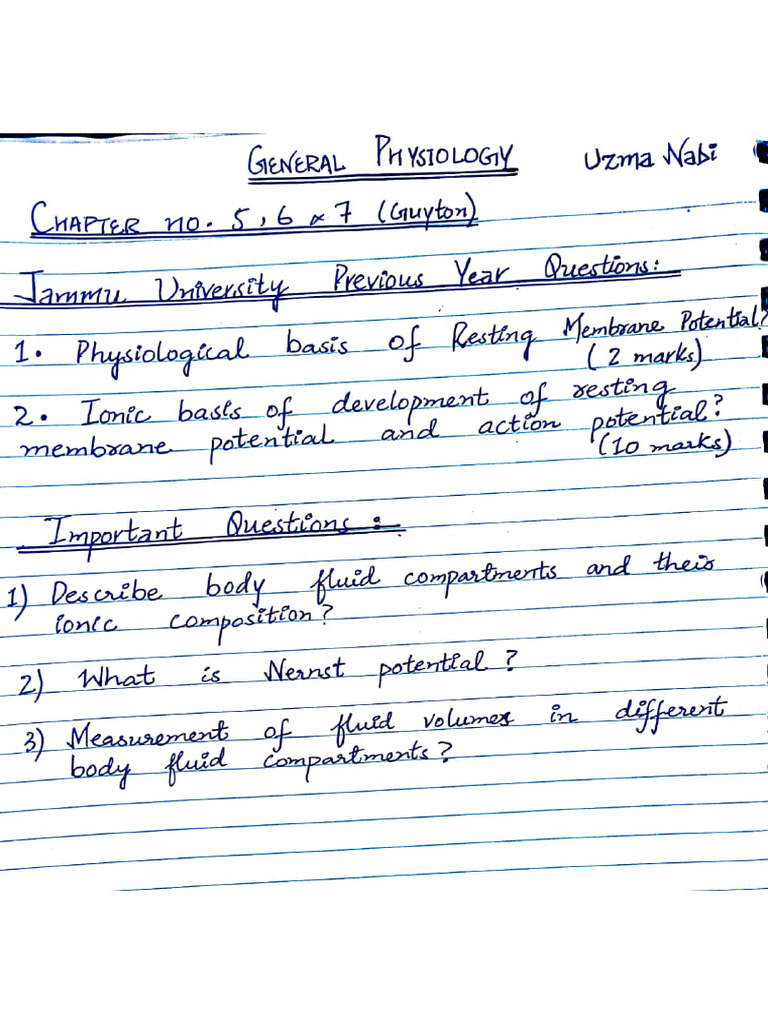 GENERAL PHYSIOLOGY Uzma Nabi
CHAPTER no. 5, 6 & 7 (Guyton)
Jammu University Previous Year Questions:
1. Physiological basis of Resting Membrane Potential?
(2 marks)
2. Ionic basis of development of resting
membrane potential and action potential?
(10 marks)
Important Questions :-
1) Describe body fluid compartments and their
ionic composition?
2) What is Nernst potential?
3) Measurement of fluid volumes in different
body fluid compartments?